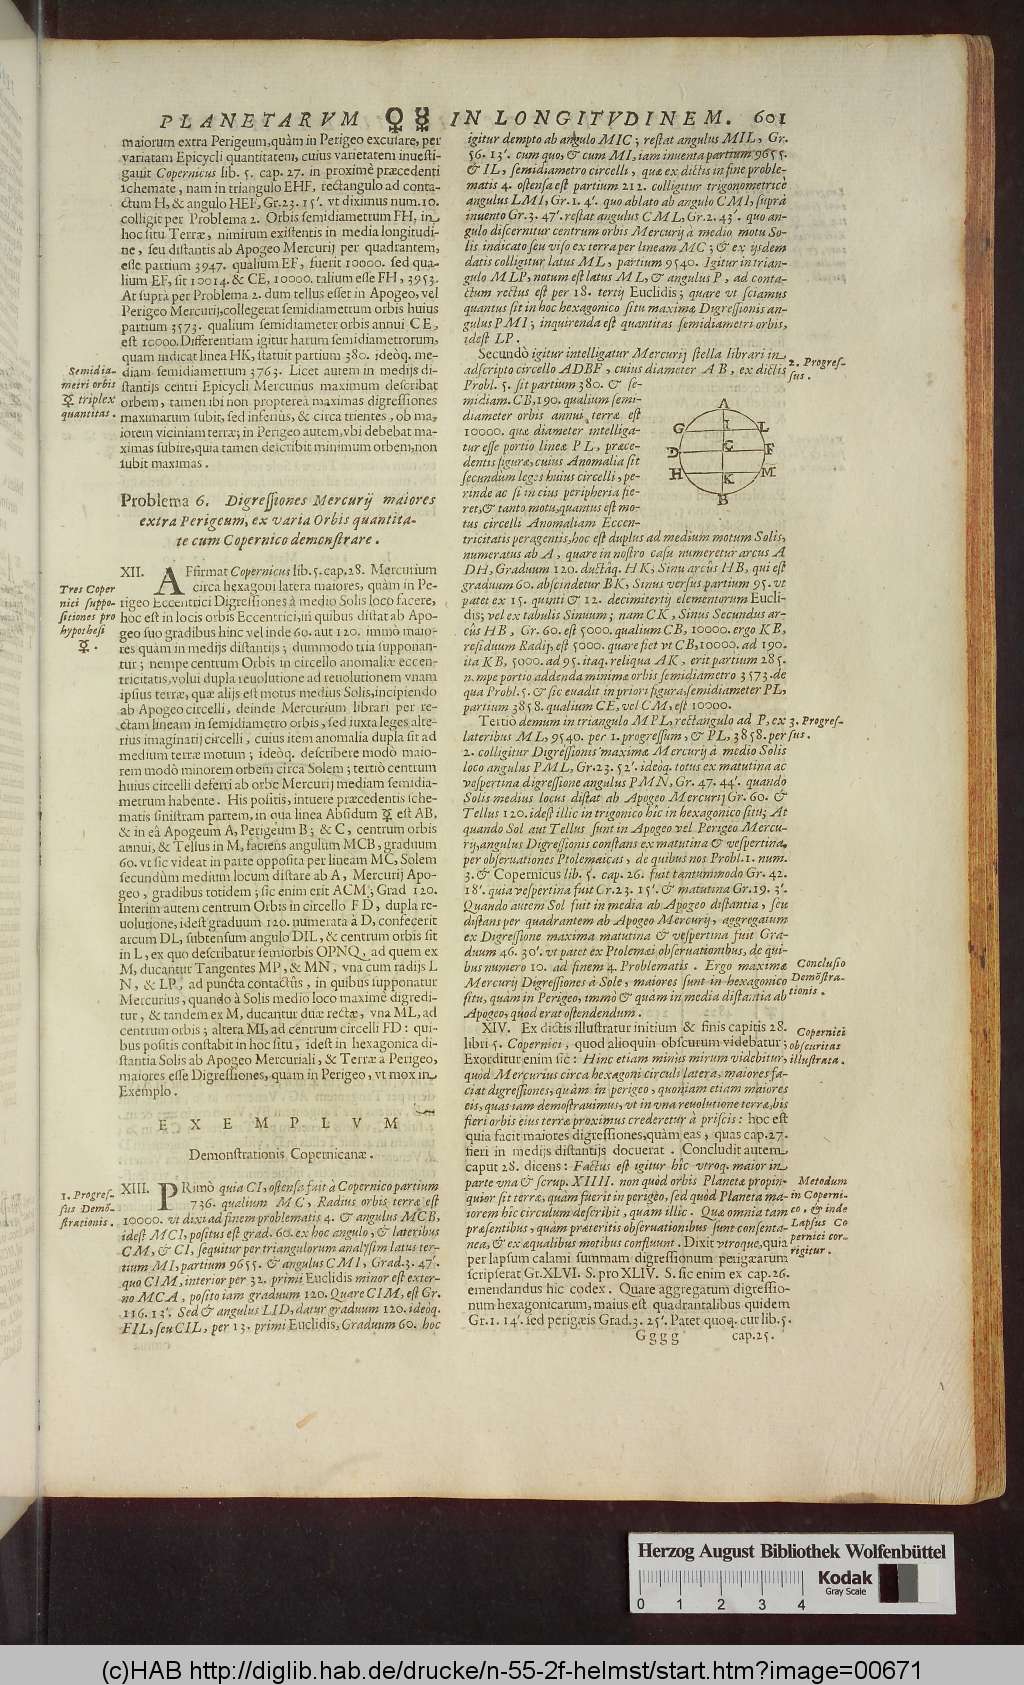 PLANETARVM ♀ ☿ IN LONGITVDINEM. 601
maiorum extra Perigeum, quàm in Perigeo excusare, per
variatam Epicycli quantitatem, cuius varietatem inuesti-
gauit Copernicus lib. 5. cap. 27. in proximè præcedenti
schemate, nam in triangulo EHF, rectangulo ad conta-
ctum H, & angulo HEF, Gr. 23. 15'. vt diximus num. 10.
colligit per Problema 2. Orbis semidiametrum FH, in
hoc situ Terræ, nimirum existentis in media longitudi-
ne, seu distantis ab Apogeo Mercurij per quadrantem,
esse partium 3947. qualium EF, fuerit 10000. sed qua-
lium EF, sit 10014. & CE, 10000. talium esse FH, 3953.
At suprà per Problema 2. dum tellus esset in Apogeo, vel
Perigeo Mercurij, collegerat semidiametrum orbis huius
partium 3573. qualium semidiameter orbis annui CE,
est 10000. Differentiam igitur harum semidiametrorum,
quam indicat linea HK, statuit partium 380. ideòq. me-
diam semidiametrum 3763. Licet autem in medijs di-
stantijs centri Epicycli Mercurius maximum describat
orbem, tamen ibi non propterea maximas digressiones
maximarum subit, sed inferiùs, & circa trientes, ob ma-
iorem viciniam terræ; in Perigeo autem, vbi debebat ma-
ximas subire, quia tamen describit minimum orbem, non
subit maximas.
Semidia-
metri orbis
☿ triplex
quantitas.
Problema 6. Digressiones Mercurij maiores
extra Perigeum, ex varia Orbis quantita-
te cum Copernico demonstrare.
XII. AFfirmat Copernicus lib. 5. cap. 28. Mercurium
circa hexagoni latera maiores, quàm in Pe-
rigeo Eccentrici Digressiones à medio Solis loco facere,
hoc est in locis orbis Eccentrici, in quibus distat ab Apo-
geo suo gradibus hinc vel inde 60. aut 120. immò maio-
res quàm in medijs distantijs; dummodo tria supponan-
tur; nempe centrum Orbis in circello anomaliæ eccen-
tricitatis, volui dupla reuolutione ad reuolutionem vnam
ipsius terræ, quæ alijs est motus medius Solis, incipiendo
ab Apogeo circelli, deinde Mercurium librari per re-
ctam lineam in semidiametro orbis, sed iuxta leges alte-
rius imaginarij circelli, cuius item anomalia dupla sit ad
medium terræ motum; ideòq. describere modò maio-
rem modò minorem orbem circa Solem; tertiò centrum
huius circelli deferri ab orbe Mercurij mediam semidia-
metrum habente. His positis, intuere præcedentis sche-
matis sinistram partem, in qua linea Absidum ☿ est AB,
& in eâ Apogeum A, Perigeum B; & C, centrum orbis
annui, & Tellus in M, faciens angulum MCB, graduum
60. vt sic videat in parte opposita per lineam MC, Solem
secundùm medium locum distare ab A, Mercurij Apo-
geo, gradibus totidem; sic enim erit ACM; Grad 120.
Interim autem centrum Orbis in circello FD, dupla re-
uolutione, idest graduum 120. numerata à D, confecerit
arcum DL, subtensum angulo DIL, & centrum orbis sit
in L, ex quo describatur semiorbis OPNQ, ad quem ex
M, ducantur Tangentes MP, & MN, vna cum radijs L
N, & LP, ad puncta contactûs, in quibus supponatur
Mercurius, quando à Solis medio loco maximè digredi-
tur, & tandem ex M, ducantur duæ rectæ, vna ML, ad
centrum orbis; altera MI, ad centrum circelli FD: qui-
bus positis constabit in hoc situ, idest in hexagonica di-
stantia Solis ab Apogeo Mercuriali, & Terræ à Perigeo,
maiores esse Digressiones, quam in Perigeo, vt mox in
Exemplo.
Tres Coper
nici suppo-
sitiones pro
hypothesi
☿.
EXEMPLVM
Demonstrationis Copernicanæ.
XIII. PRimò quia CI, ostensa fuit à Copernico partium
736. qualium MC, Radius orbis terræ est
10000. vt dixi ad finem problematis 4. & angulus MCB,
idest MCI, positus est grad. 60. ex hoc angulo, & lateribus
CM, & CI, sequitur per triangulorum analysim latus ter-
tium MI, partium 9655. & angulus CMI, Grad. 3. 47'.
quo CIM, interior per 32. primi Euclidis minor est exter-
no MCA, posito iam graduum 120. Quare CIM, est Gr.
116. 13'. Sed & angulus LID, datur graduum 120. ideòq.
FIL, seu CIL, per 13. primi Euclidis, Graduum 60. hoc
1. Progres-
sus Demõ-
strationis.
igitur dempto ab angulo MIC; restat angulus MIL, Gr.
56. 13'. cum quo, & cum MI, iam inuenta partium 9655.
& IL, semidiametro circelli, quæ ex dictis in fine proble-
matis 4. ostensa est partium 212. colligitur trigonometricè
angulus LMI, Gr. 1. 4'. quo ablato ab angulo CMI, suprà
inuento Gr. 3. 47'. restat angulus CML, Gr. 2. 43'. quo an-
gulo discernitur centrum orbis Mercurij à medio motu So-
lis indicato seu viso ex terra per lineam MC; & ex ijsdem
datis colligitur latus ML, partium 9540. Igitur in trian-
gulo MLP, notum est latus ML, & angulus P, ad conta-
ctum rectus est per 18. tertij Euclidis; quare vt sciamus
quantus sit in hoc hexagonico situ maximæ Digressionis an-
gulus PMI; inquirenda est quantitas semidiametri orbis,
idest LP.
Secundò igitur intelligatur Mercurij stella librari in
adscripto circello ADBF, cuius diameter AB, ex dictis
Probl. 5. sit partium 380. & se-
midiam. CB, 190. qualium semi-
diameter orbis annui terræ est
10000. quæ diameter intelliga-
tur esse portio lineæ PL, præce-
dentis figuræ, cuius Anomalia sit
secundùm leges huius circelli, pe-
rinde ac si in eius peripheria fie-
ret, & tanto motu, quantus est mo-
tus circelli Anomaliam Eccen-
tricitatis peragentis, hoc est duplus ad medium motum Solis,
numeratus ab A, quare in nostro casu numeretur arcus A
DH, Graduum 120. ductâq. HK, Sinu arcûs HB, qui est
graduum 60. abscindetur BK, Sinus versus partium 95. vt
patet ex 15. quinti & 12. decimitertij elementorum Eucli-
dis; vel ex tabulis Sinuum; nam CK, Sinus Secundus ar-
cûs HB, Gr. 60. est 5000. qualium CB, 10000. ergo KB,
residuum Radij, est 5000. quare fiet vt CB, 10000. ad 190.
ita KB, 5000. ad 95. itaq. reliqua AK, erit partium 285.
n. mpe portio addenda minimæ orbis semidiametro 3573. de
qua Probl. 5. & sic euadit in priori figura, semidiameter PL,
partium 3858. qualium CE, vel CM, est 10000.
2. Progres-
sus.
A
G I L
D C F
H K M
B
Tertiò demum in triangulo MPL, rectangulo ad P, ex
lateribus ML, 9540. per 1. progressum, & PL, 3858. per
2. colligitur Digressionis maximæ Mercurij à medio Solis
loco angulus PML, Gr. 23. 52'. ideòq. totus ex matutina ac
vespertina digressione angulus PMN, Gr. 47. 44'. quando
Solis medius locus distat ab Apogeo Mercurij Gr. 60. &
Tellus 120. idest illic in trigonico hic in hexagonico situ; At
quando Sol aut Tellus sunt in Apogeo vel Perigeo Mercu-
rij, angulus Digressionis constans ex matutina & vespertina,
per obseruationes Ptolemaicas, de quibus nos Probl. 1. num.
3. & Copernicus lib. 5. cap. 26. fuit tantummodo Gr. 42.
18'. quia vespertina fuit Gr. 23. 15'. & matutina Gr. 19. 3'.
Quando autem Sol fuit in media ab Apogeo distantia, seu
distans per quadrantem ab Apogeo Mercurij, aggregatum
ex Digressione maxima matutina & vespertina fuit Gra-
duum 46. 30'. vt patet ex Ptolemæi obseruationibus, de qui-
bus numero 10. ad finem 4. Problematis. Ergo maximæ
Mercurij Digressiones à Sole, maiores sunt in hexagonico
situ, quàm in Perigeo, immò & quàm in media distantia ab
Apogeo, quod erat ostendendum.
3. Progres-
sus.
Conclusio
Demõstra-
tionis.
XIV. Ex dictis illustratur initium & finis capitis 28.
libri 5. Copernici, quod alioquin obscurum videbatur;
Exorditur enim sic: Hinc etiam minus mirum videbitur,
quòd Mercurius circa hexagoni circuli latera, maiores fa-
ciat digressiones, quàm in perigeo, quoniam etiam maiores
eis, quas iam demõstrauimus, vt in vna reuolutione terræ, bis
fieri orbis eius terræ proximus crederetur à priscis: hoc est
quia facit maiores digressiones, quàm eas, quas cap. 27.
fieri in medijs distantijs docuerat. Concludit autem
caput 28. dicens: Factus est igitur hîc vtroq. maior in
parte vna & scrup. XIIII. non quòd orbis Planetæ propin-
quior sit terræ, quàm fuerit in perigeo, sed quòd Planeta ma-
iorem hîc circulum describit, quam illic. Quæ omnia tam
præsentibus, quàm præteritis obseruationibus sunt consenta-
nea, & ex æqualibus motibus confluunt. Dixit vtroque, quia
per lapsum calami summam digressionum perigæarum
scripserat Gr. XLVI. S. pro XLIV. S. sic enim ex cap. 26.
emendandus hic codex. Quare aggregatum digressio-
num hexagonicarum, maius est quadrantalibus quidem
Gr. 1. 14'. sed perigæis Grad. 3. 25'. Patet quoq. cur lib. 5.
Copernici
obscuritas
illustrata.
Metodum
in Coperni-
co, & inde
Lapsus Co
pernici cor-
rigitur.
Gggg cap. 25.
Herzog August Bibliothek Wolfenbüttel
Kodak
Gray Scale
0 1 2 3 4
(c)HAB http://diglib.hab.de/drucke/n-55-2f-helmst/start.htm?image=00671